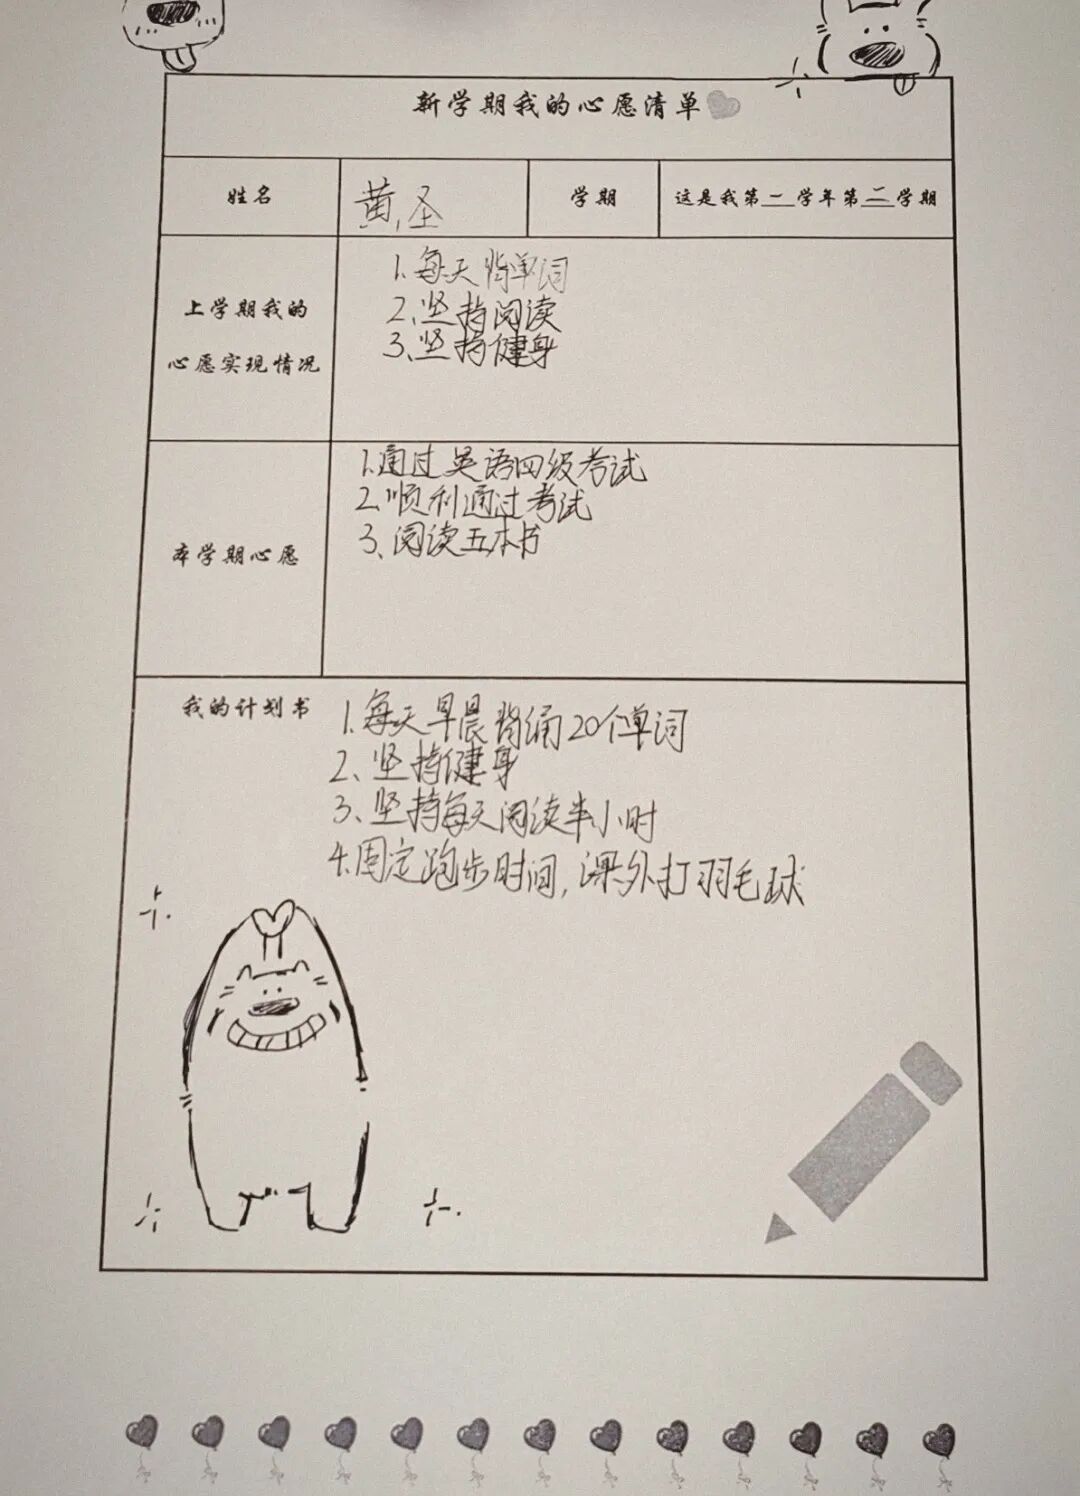 新学期我的心愿清单
姓名 黄圣 学期 这是我第一学年第二学期
上学期我的
心愿实现情况
1.每天背单词
2.坚持阅读
3.坚持健身
本学期心愿
1.通过英语四级考试
2.顺利通过考试
3、阅读五本书
我的计划书
1.每天早晨背诵20个单词
2、坚持健身
3、坚持每天阅读半小时
4.固定跑步时间,课外打羽毛球